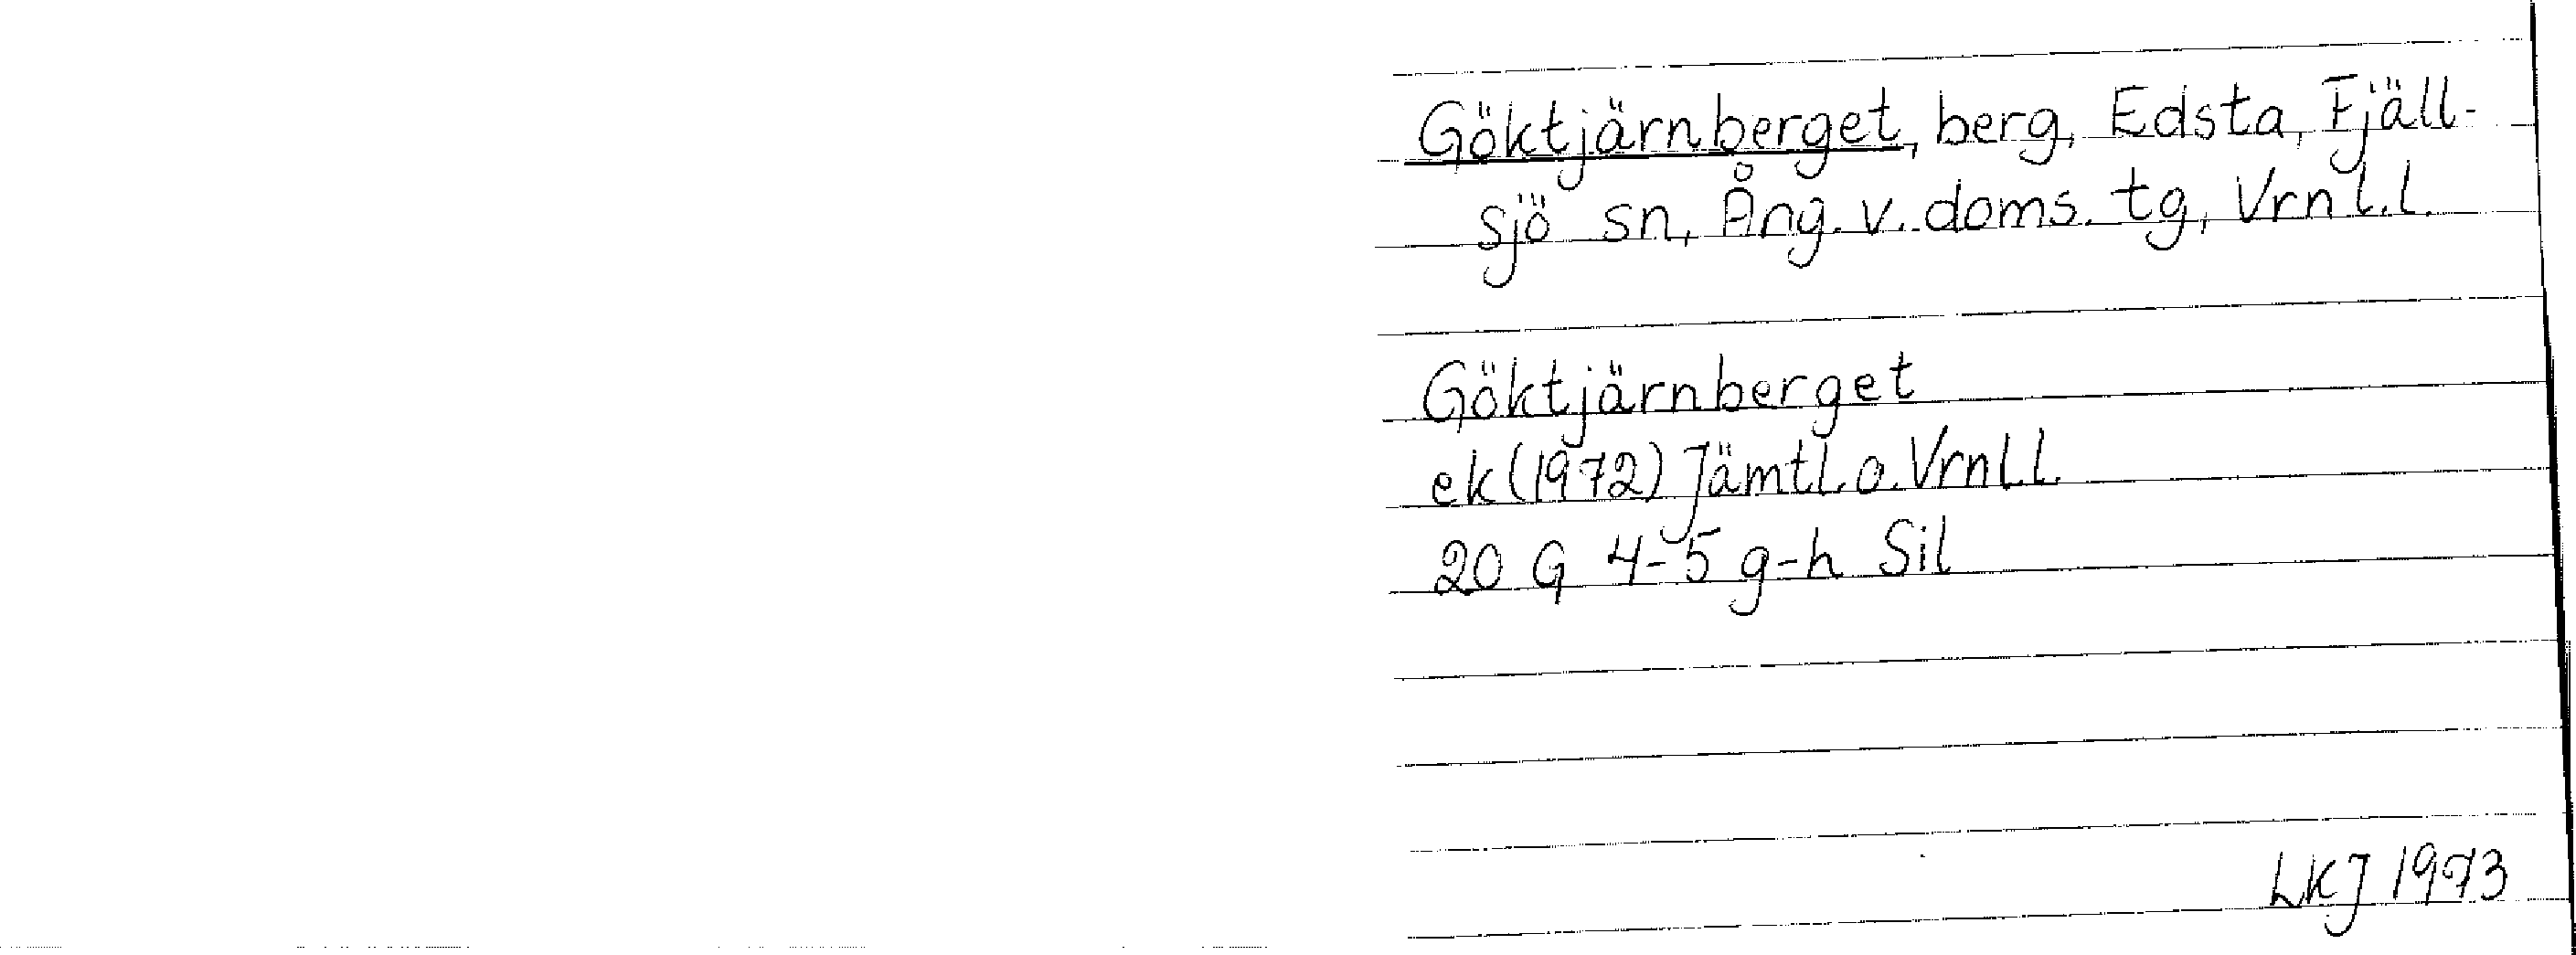 Göktjärnberget, berg, Edsta, Fjäll-
sjö sn, Ång. v. doms. tg, Vrnl.l.
Göktjärnberget
ek (1972) Jämtl. o. Vrnl.l.
20 G 4-5 g-h Sil
LKJ 1973